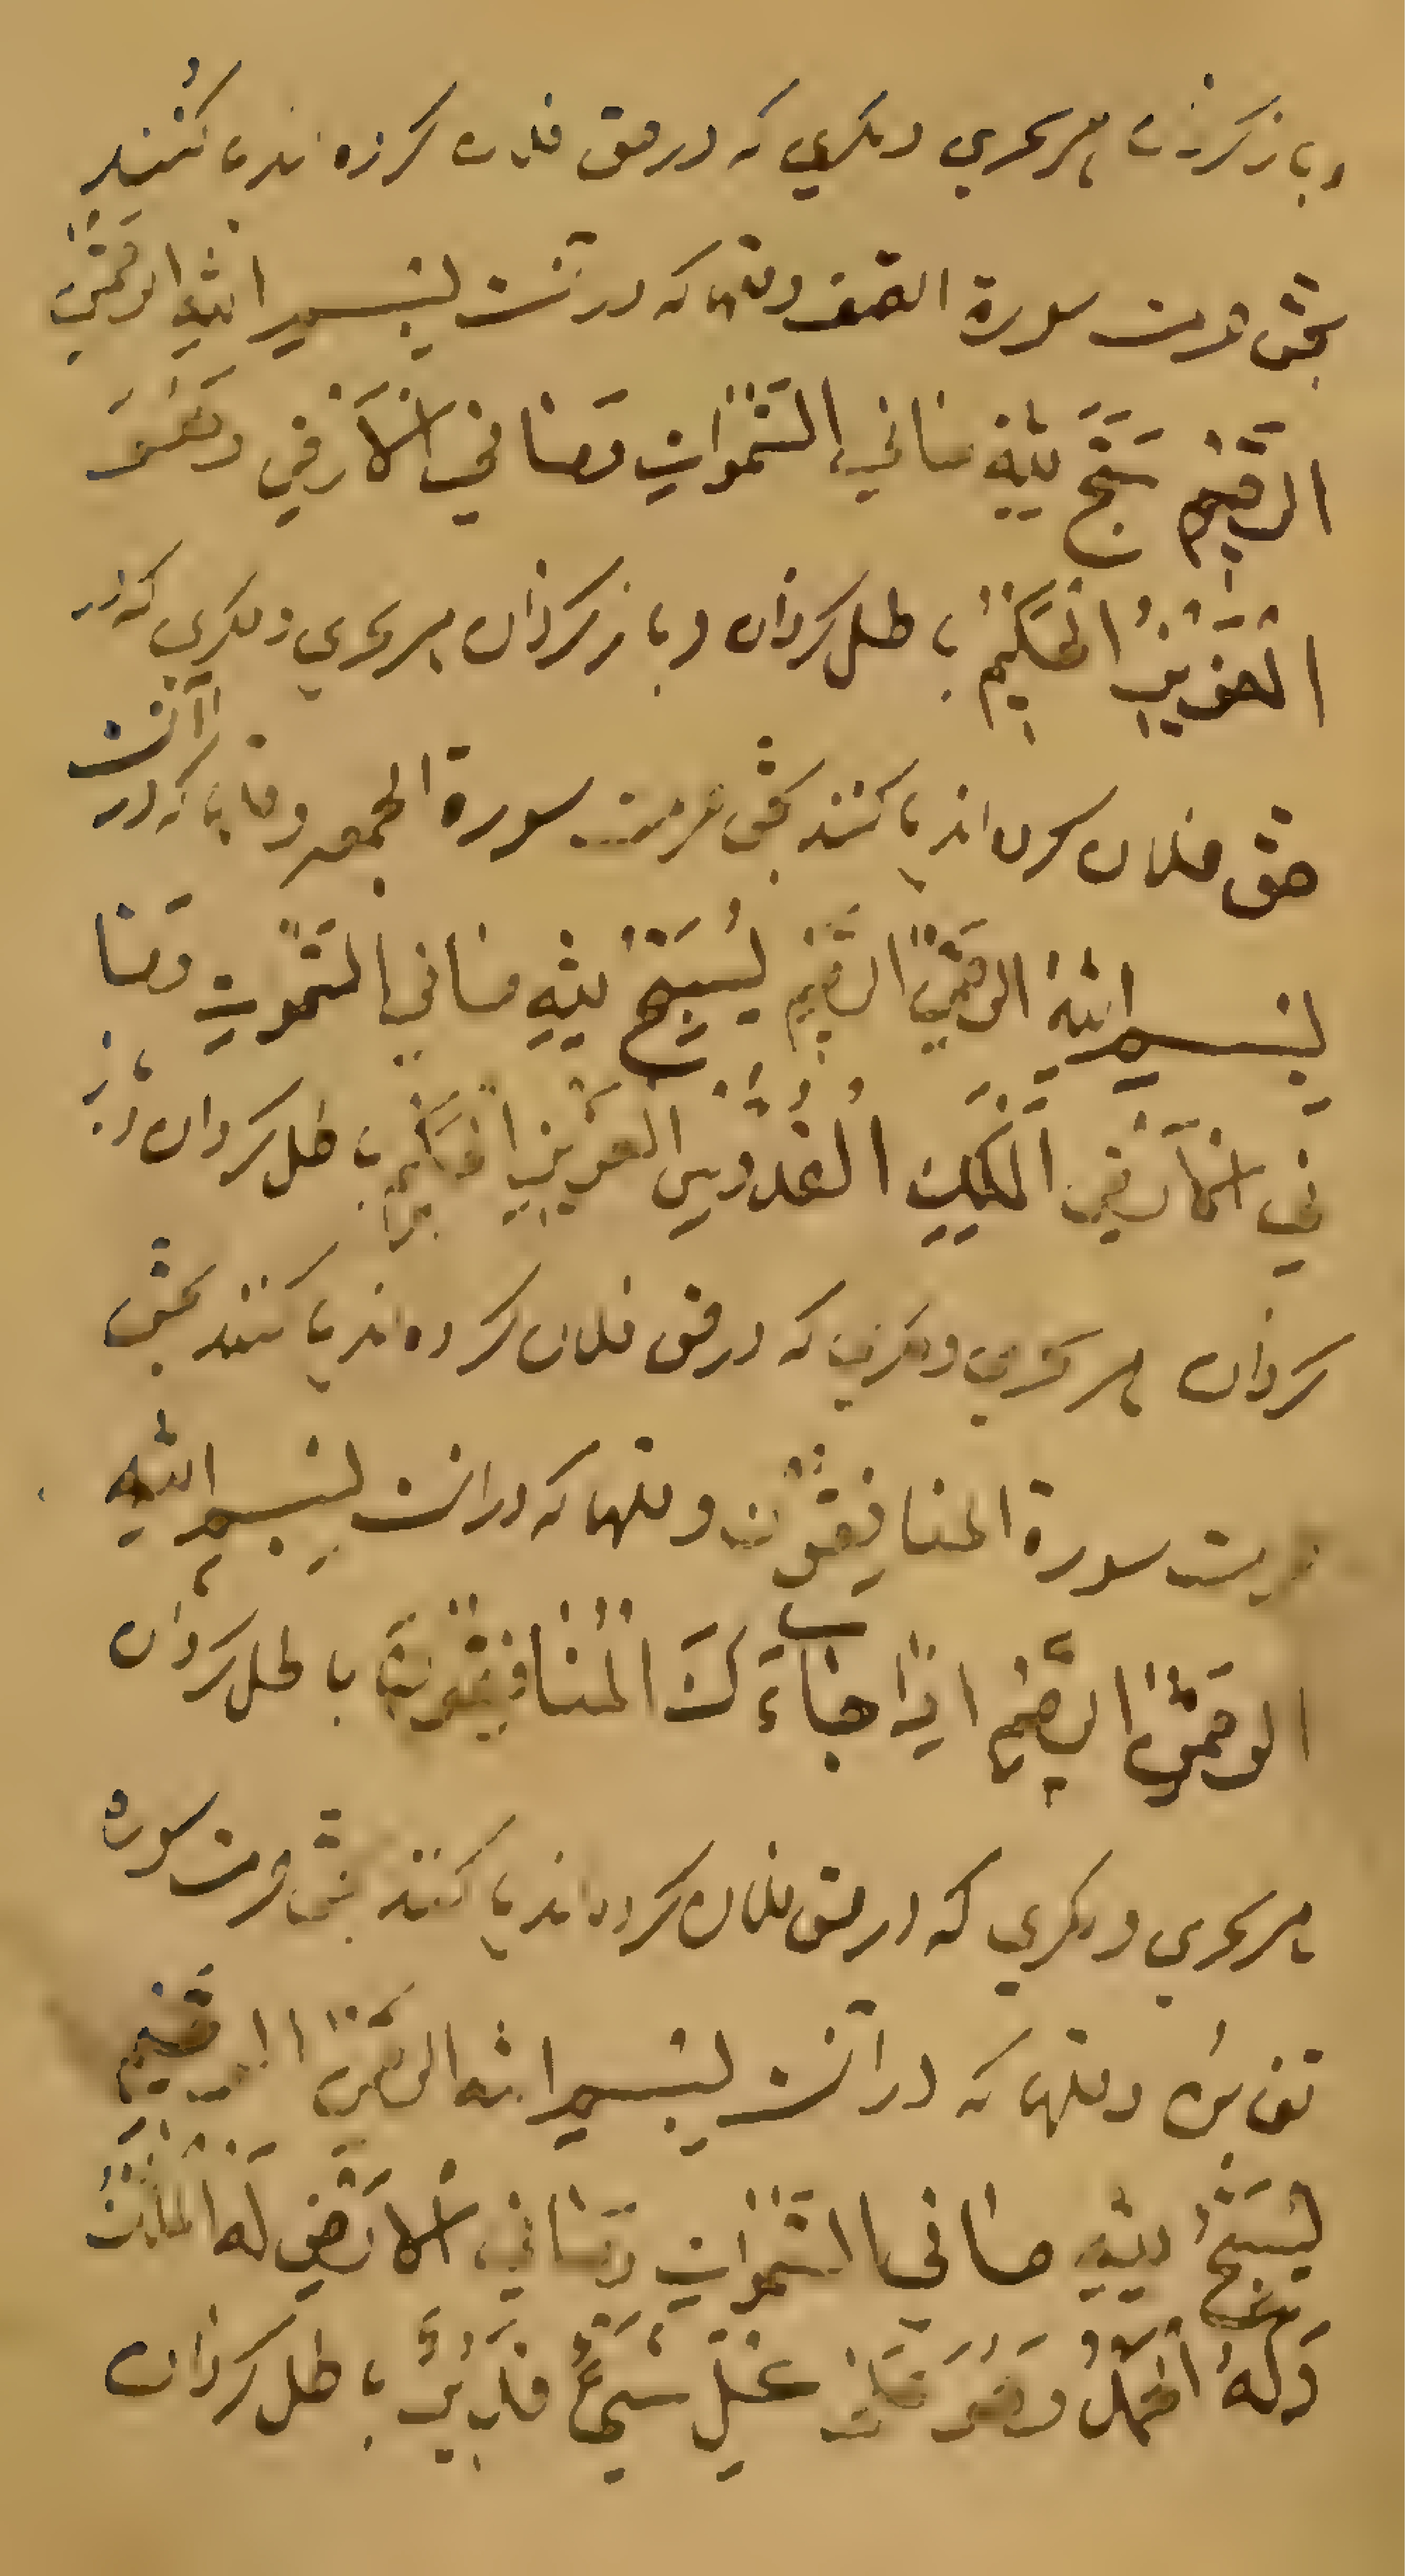 و باز کردان هر سحری و مکری که در حق فلان کرده اند یا کنند
بحق حرمت سورة الصف و آیتها که در آنست بِسْمِ اللّٰهِ الرَّحْمٰنِ
الرَّحِيْمِ سَبَّحَ لِلّٰهِ مَا فِي السَّمٰوَاتِ وَمَا فِي الْاَرْضِ وَهُوَ
الْعَزِيْزُ الْحَكِيْمُ باطل کردان و باز کردان هر سحری و مکری که در
حق فلان کرده اند یا کنند بحق حرمت سورة الجمعه و آیتها که در آنست
بِسْمِ اللّٰهِ الرَّحْمٰنِ الرَّحِيْمِ يُسَبِّحُ لِلّٰهِ مَا فِي السَّمٰوٰتِ وَمَا
فِي الْاَرْضِ الْمَلِكِ الْقُدُّوْسِ الْعَزِيْزِ الْحَكِيْمِ باطل کردان و باز
کردان هر سحری و مکری که در حق فلان کرده اند یا کنند بحق
حرمت سورة المنافِقُوْن و آیتها که در آنست بِسْمِ اللّٰهِ
الرَّحْمٰنِ الرَّحِيْمِ اِذَا جَاءَكَ الْمُنَافِقُوْنَ باطل کردان
هر سحری و مکری که در حق فلان کرده اند یا کنند بحق حرمت سوره
تغابن و آیتها که در آنست بِسْمِ اللّٰه الرَّحْمٰنِ الرَّحِيْمِ
يُسَبِّحُ لِلّٰهِ مَا فِي السَّمٰوَاتِ وَمَا فِي الْاَرْضِ لَهُ الْمُلْكُ
وَلَهُ الْحَمْدُ وَهُوَ عَلٰى كُلِّ شَيْءٍ قَدِيْرٌ باطل کردان